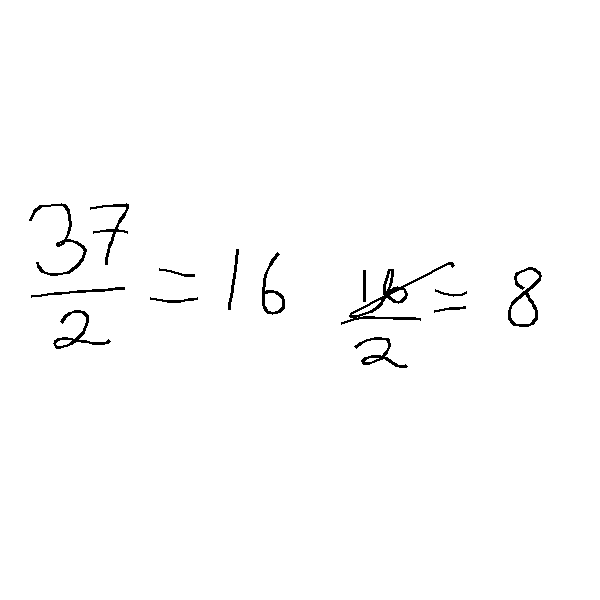 37/2 = 16 16/2 = 8